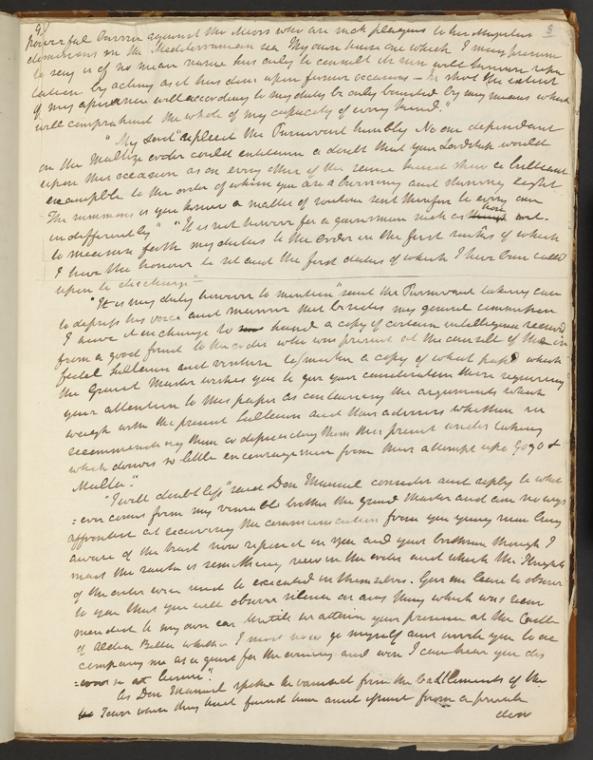 powerful Barrier against the Moors who are such plagues to his Majesties
dominions in the Mediterranean sea My own house one which I may presume
to say is of no mean name has only to consult its own well known repu
tation by acting as it has done upon former occasions – in short the extent
of my assistance will according to my duty be only bounded by my means which
will comprehend the whole of my capacity of every kind."
"My Lord" replied the Pursuivant humbly No one dependant
on the Maltese order could entertain a doubt that your Lordship would
upon this occasion as on every other of the same kind show a brilliant
example to the order of whom you are a burning and shining light
The summons is you know a matter of routine sent therefore to every one
indifferently" "It is not however for a pursuivant such as
to measure forth my duties to the Order in the first ranks of which
I have the honour to sit and the first duties of which I have been called
upon to discharge"
"It is my duty however to mention" said the Pursuivant taking care
to depress his voice and manner that besides my general commission
I have it in charge to hand a copy of certain intelligence received
from a good friend to the order who was present at the council of the in
fidel Sultaun and venture to a copy of what past which
the Grand Master wishes you to give your consideration there requiring
your attention to this paper as containing the arguments which
weigh with the present Sultaun and his advisers whether in
recommending them or depreciating them this present undertaking
which derives so little encouragement from their attempt upon Gozo &
Malta."
"I will doubtless" said Don Manuel consider and reply to what
=ever comes from my venerable brother the Grand Master and can no ways
affronted at receiving the communication from you young men being
aware of the trust now reposed in you and your brethren though I
must the is something new in the order and which the Knights
of the order were used to executed in themselves. Give me leave to observe
to you that you will observe silence on any thing which was recom
mended to my own ear until we attain your presence at the Castle
of Aldea Bella whither I must now go myself and invite you to ac
company me as a guest for the evening and when I can hear you dis
=course at leisure."
As Don Manuel spoke he vanished from the battlements of the
Tower where they had found him and issued from a private
door